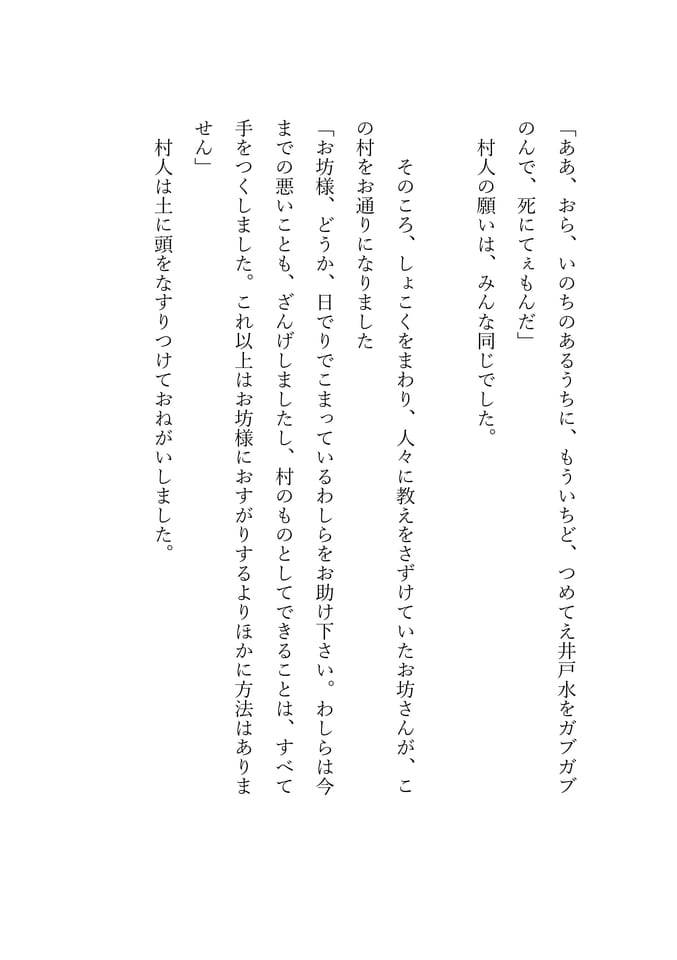 「ああ、おら、いのちのあるうちに、もういちど、つめてえ井戸水をガブガブ
のんで、死にてぇもんだ」
村人の願いは、みんな同じでした。
そのころ、しょこくをまわり、人々に教えをさずけていたお坊さんが、こ
の村をお通りになりました
「お坊様、どうか、日でりでこまっているわしらをお助け下さい。わしらは今
までの悪いことも、ざんげしましたし、村のものとしてできることは、すべて
手をつくしました。これ以上はお坊様におすがりするよりほかに方法はありま
せん」
村人は土に頭をなすりつけておねがいしました。